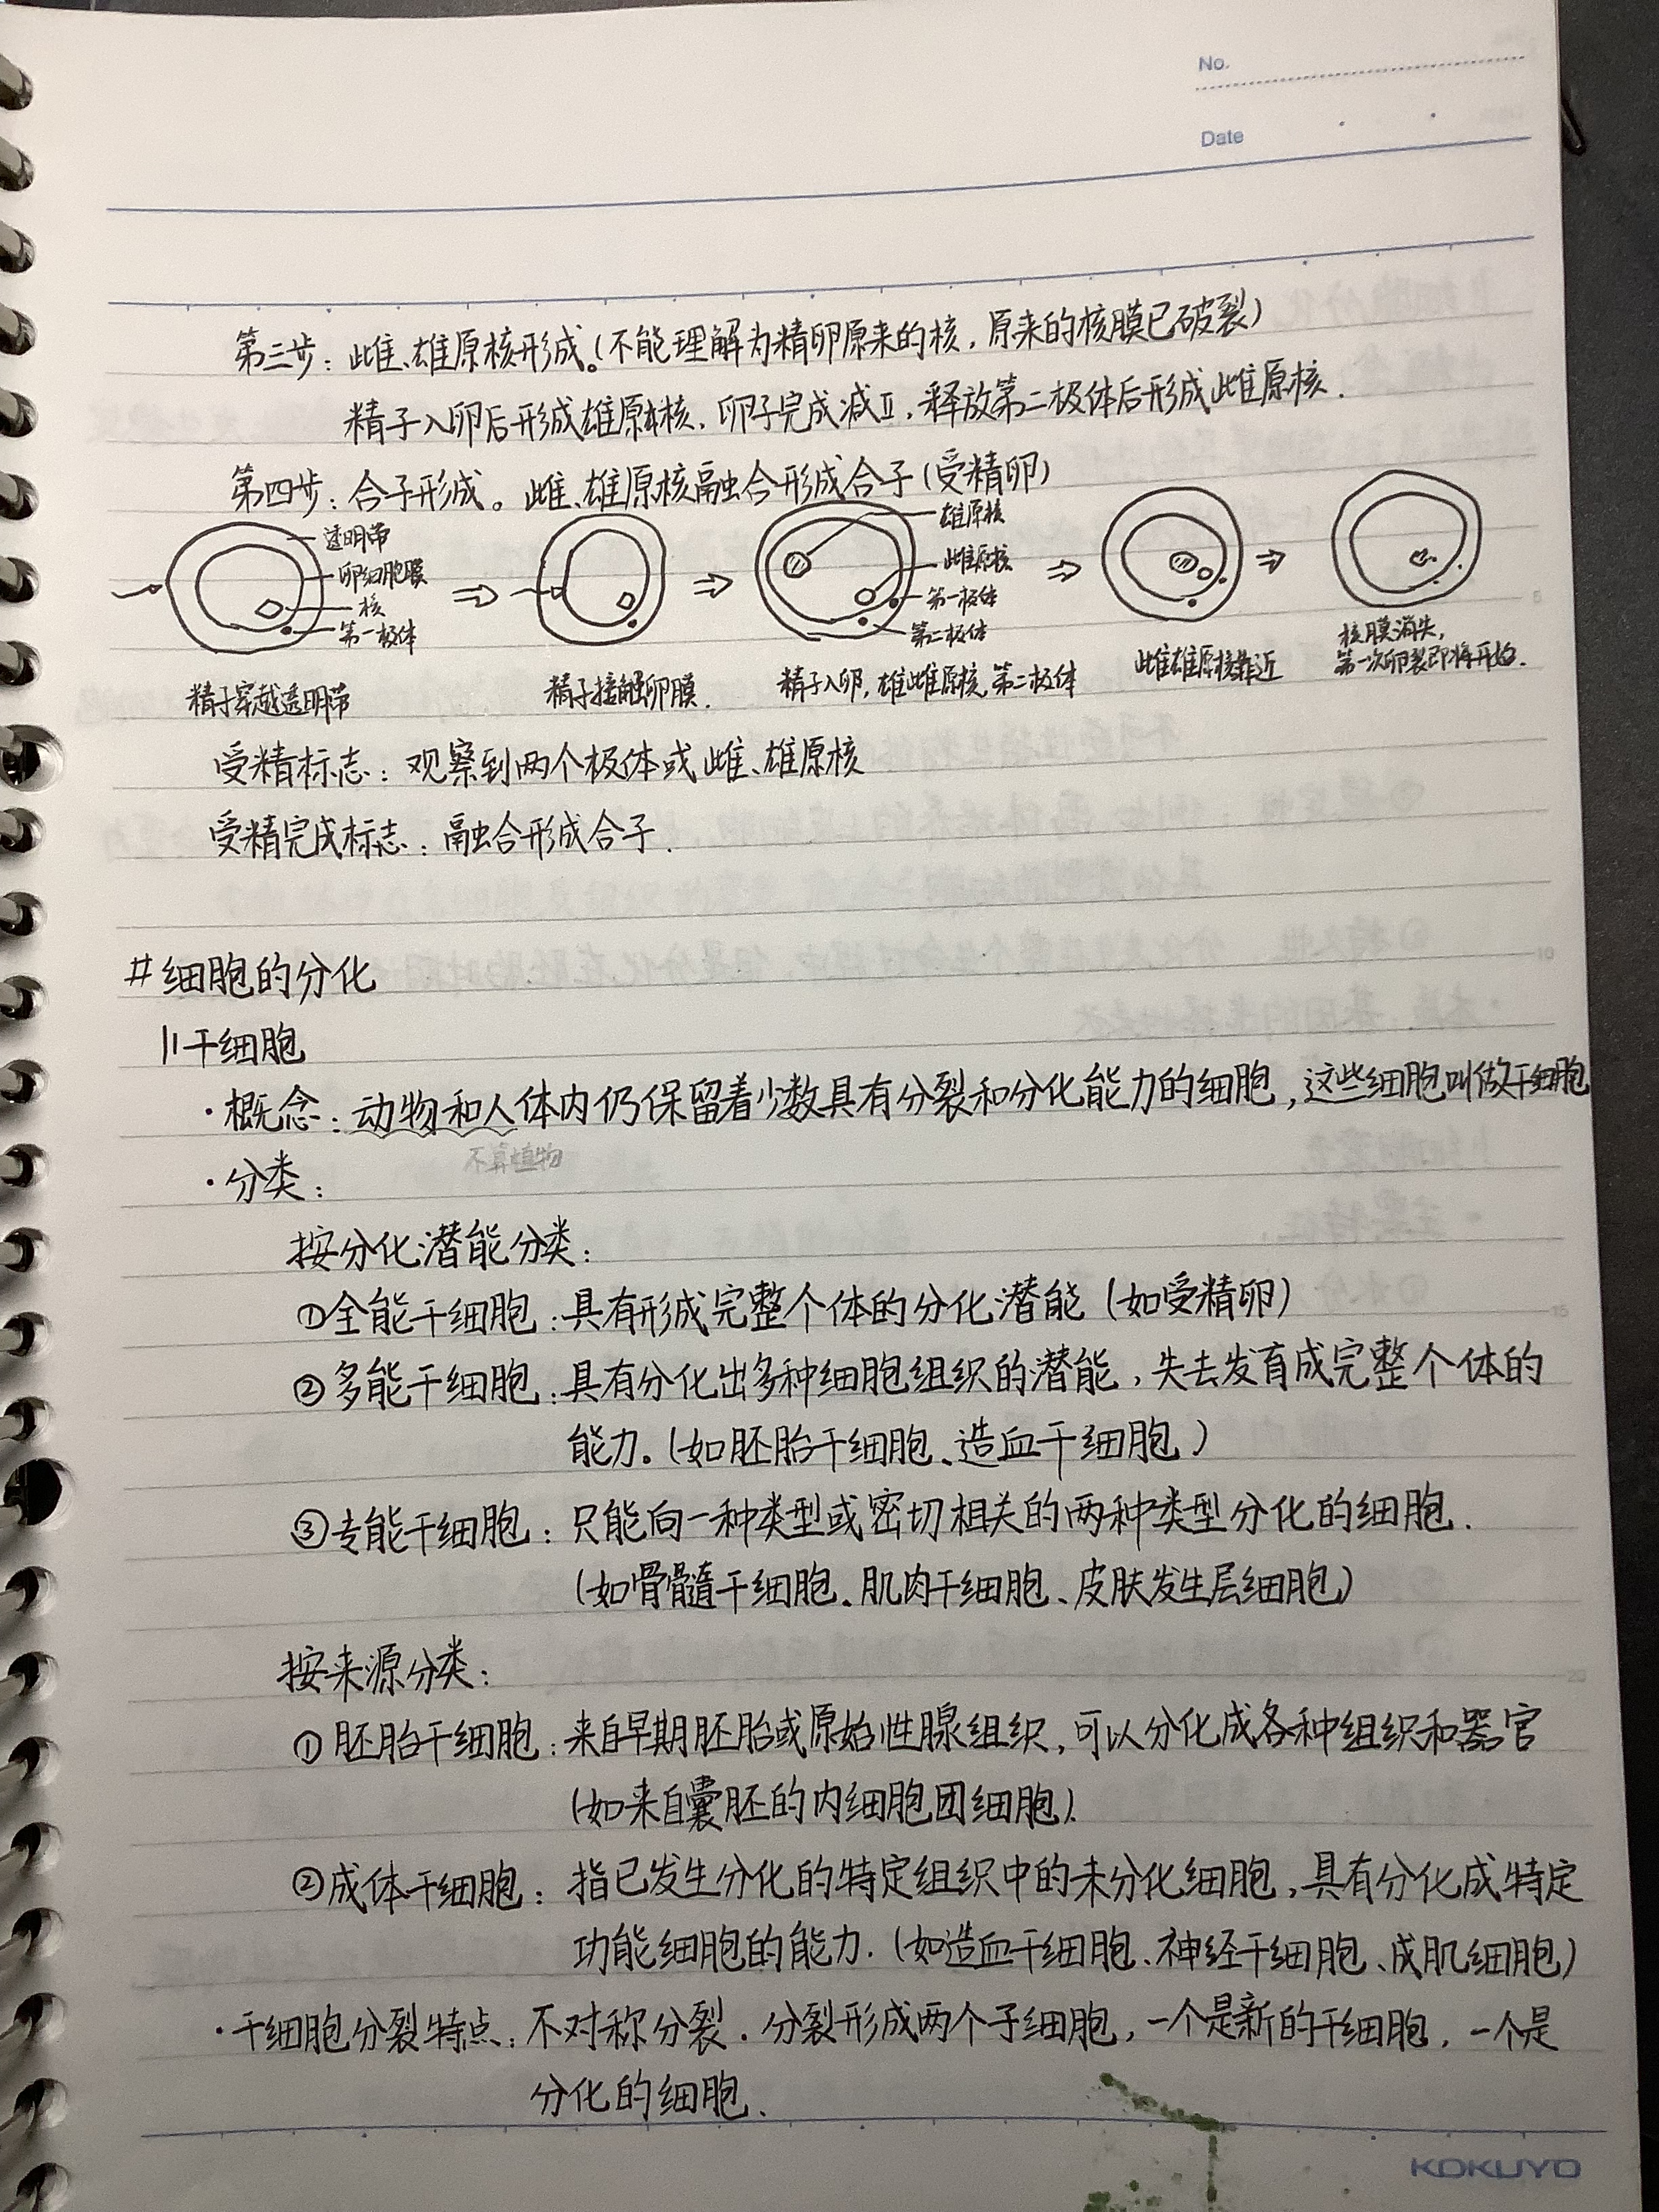 No.
Date
第三步：雌、雄原核形成。(不能理解为精卵原来的核，原来的核膜已破裂)
精子入卵后形成雄原核，卵子完成减Ⅱ，释放第二极体后形成雌原核．
第四步：合子形成。雌、雄原核融合形成合子(受精卵)
透明带
卵细胞膜
核
第一极体
雄原核
雌原核
第一极体
第二极体
精子穿越透明带
精子接触卵膜．
精子入卵，雄雌原核，第二极体
雌雄原核靠近
核膜消失，
第一次卵裂即将开始．
受精标志：观察到两个极体或雌、雄原核
受精完成标志：融合形成合子．
# 细胞的分化
||干细胞
·概念：动物和人体内仍保留着少数具有分裂和分化能力的细胞，这些细胞叫做干细胞
不算植物
·分类：
按分化潜能分类：
①全能干细胞：具有形成完整个体的分化潜能(如受精卵)
②多能干细胞：具有分化出多种细胞组织的潜能，失去发育成完整个体的
能力。(如胚胎干细胞、造血干细胞)
③专能干细胞：只能向一种类型或密切相关的两种类型分化的细胞．
(如骨髓干细胞、肌肉干细胞、皮肤发生层细胞)
按来源分类：
①胚胎干细胞：来自早期胚胎或原始性腺组织，可以分化成各种组织和器官
(如来自囊胚的内细胞团细胞)．
②成体干细胞：指已发生分化的特定组织中的未分化细胞，具有分化成特定
功能细胞的能力．(如造血干细胞、神经干细胞、成肌细胞)
·干细胞分裂特点：不对称分裂．分裂形成两个子细胞，一个是新的干细胞，一个是
分化的细胞．
KOKUYO